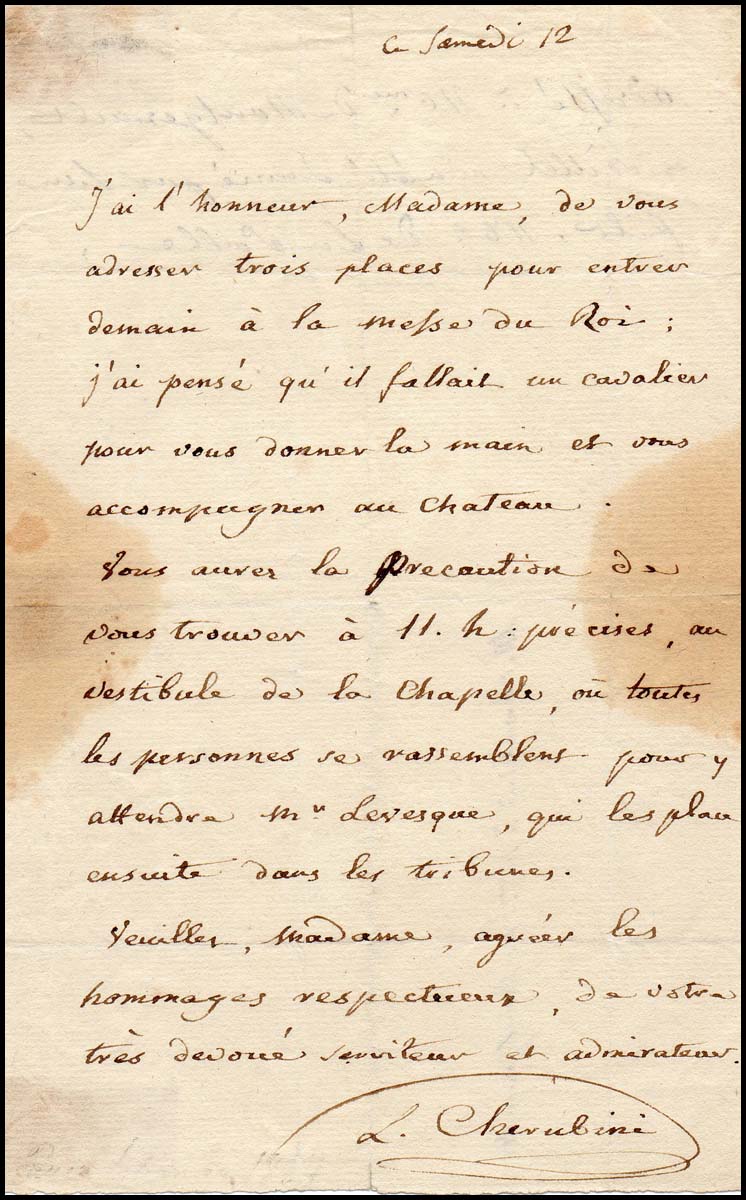 Ce Samedi 12
J'ai l'honneur, Madame, de vous
adresser trois places pour entrer
demain à la messe du Roi ;
j'ai pensé qu'il fallait un cavalier
pour vous donner la main et vous
accompagner au Chateau .
Vous aurez la Precaution de
vous trouver à 11. h : précises, au
vestibule de la Chapelle, où toutes
les personnes se rassemblent pour y
attendre Mr Levesque, qui les place
ensuite dans les tribunes.
Veuillez, Madame, agréer les
hommages respectueux, de votre
très devoué serviteur et admirateur.
L. Cherubini